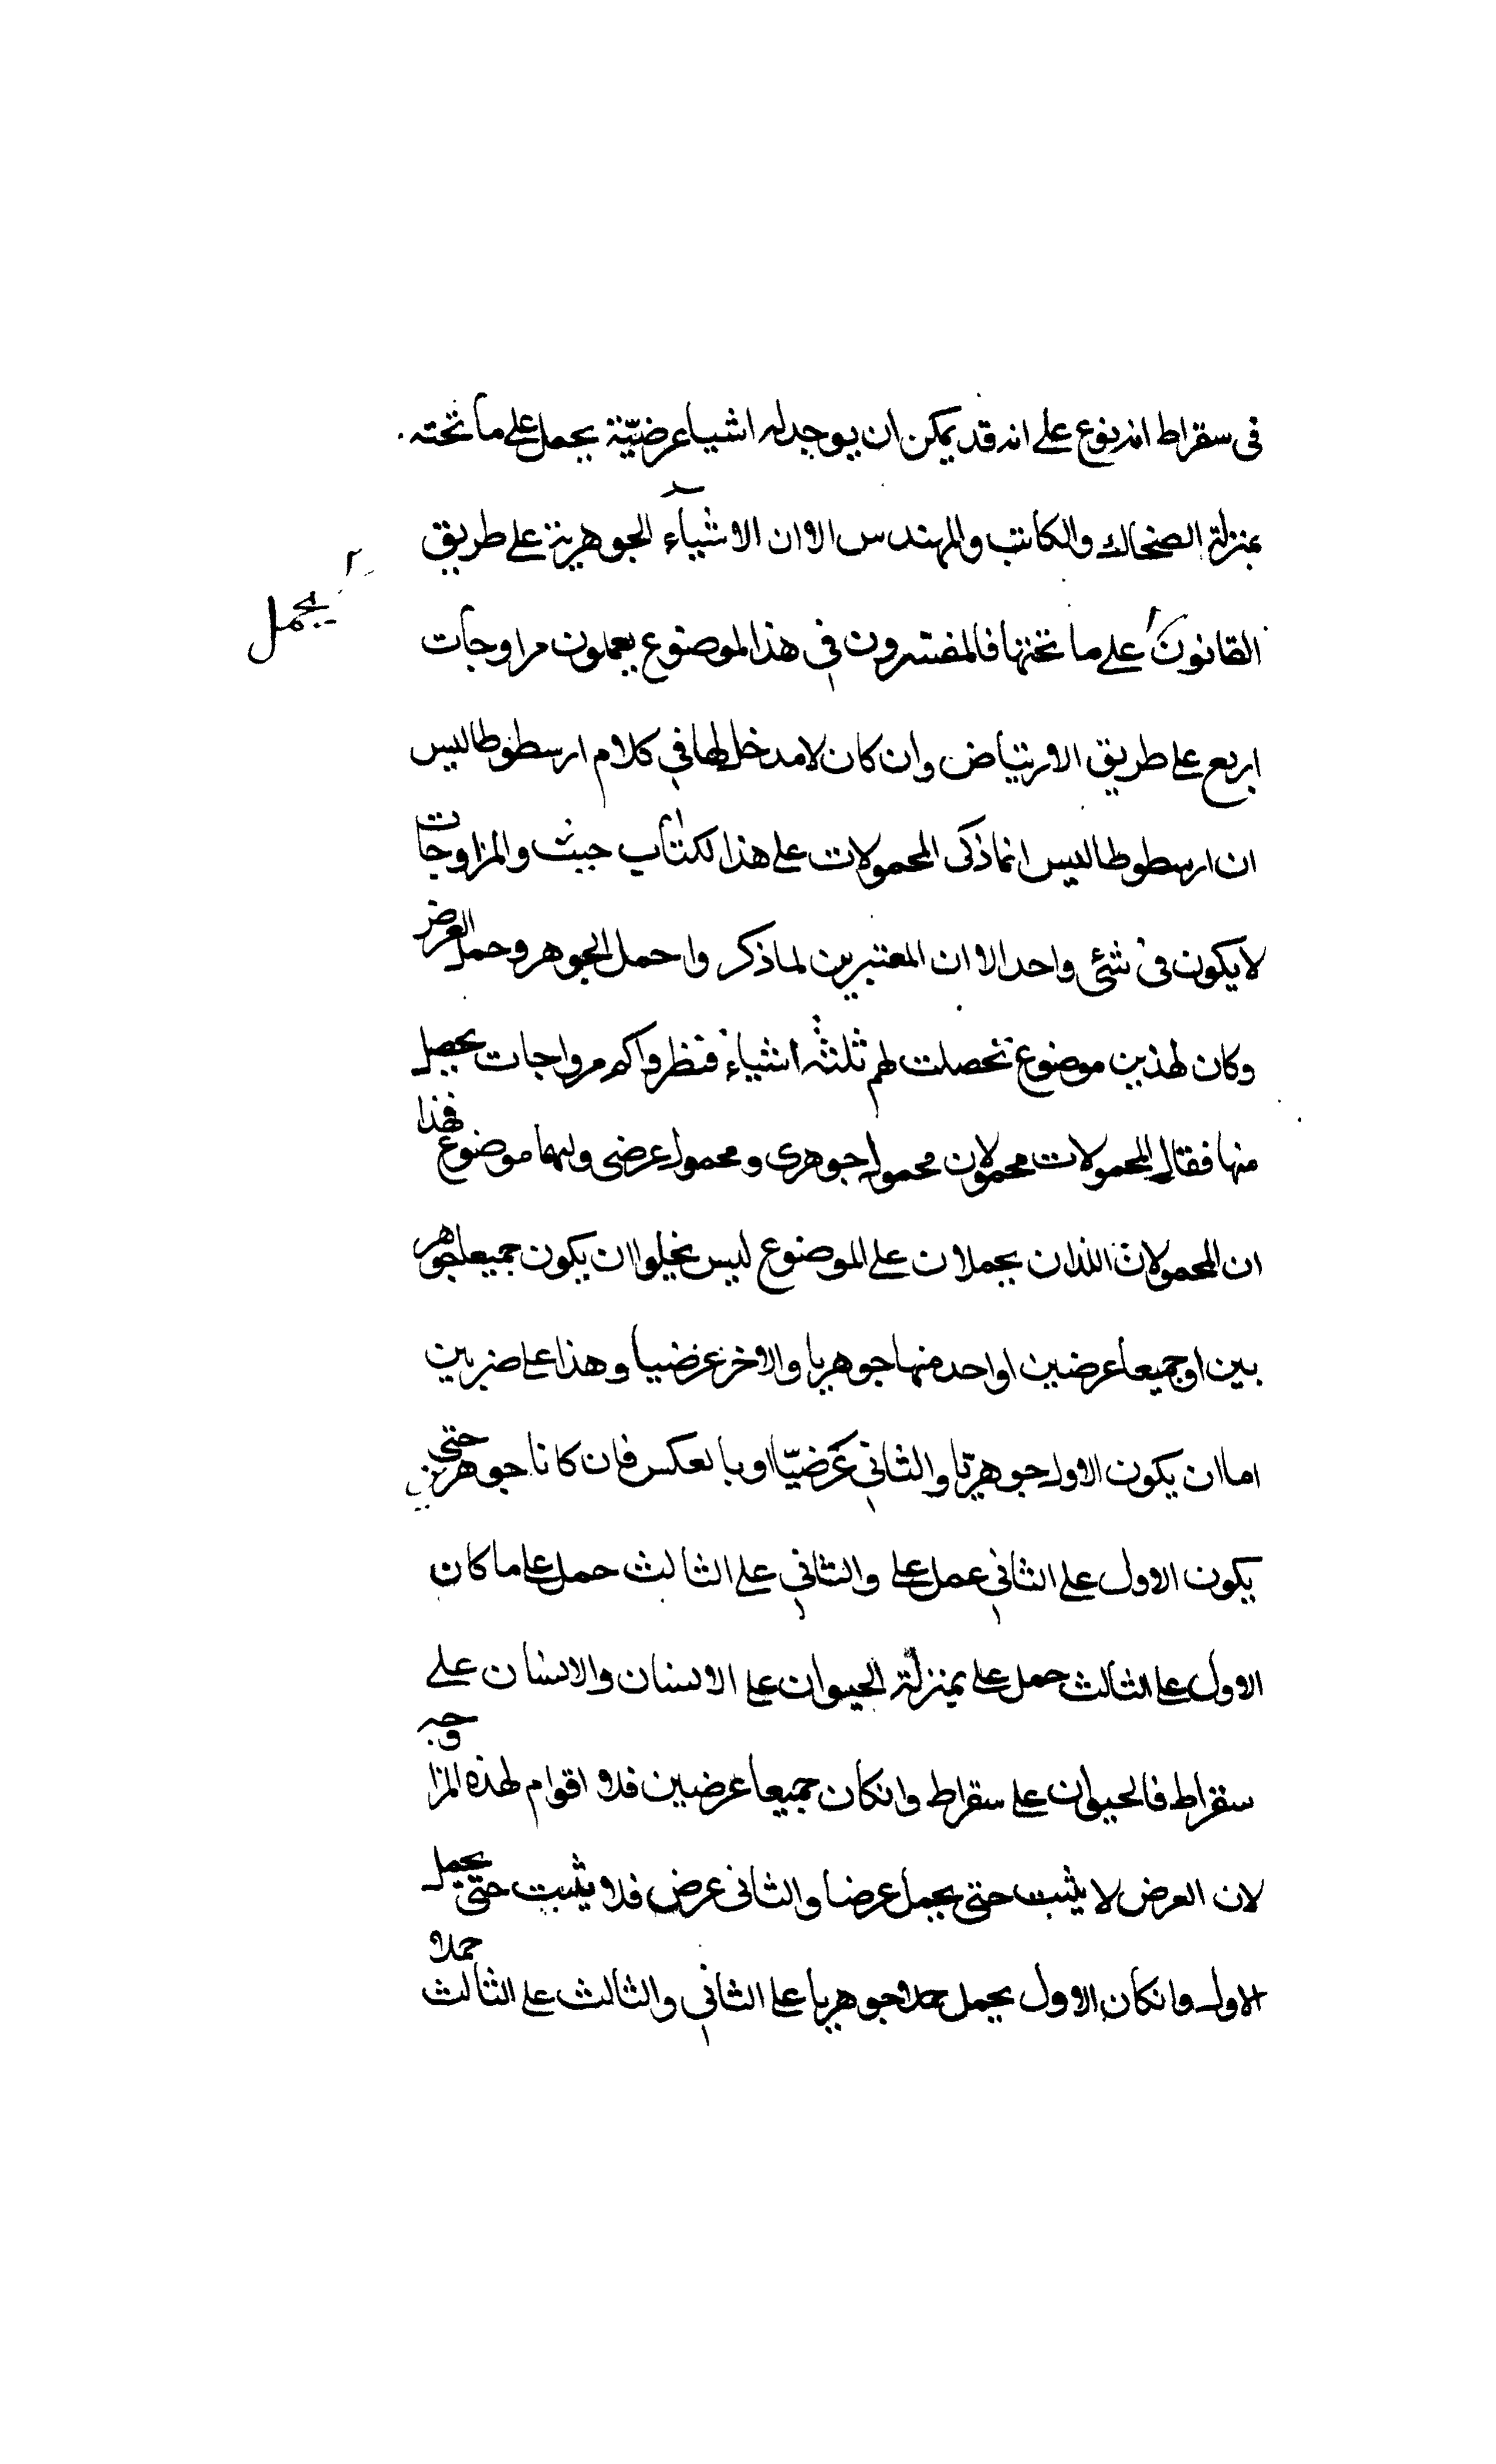 فى سقراط انه نوع على انه قد يمكن ان يوجد له اشيا عرضيّة يحمل على ما تحته
بمنزلة الضحاك والكاتب والمهندس الا ان الاشياء الجوهرية على طريق
القانون على ما تحتها فالمفسرون في هذا الموضوع يعملون مزاوجات
يحمل
اربع على طريق الارتياض وان كان لا مدخل لها في كلام ارسطوطاليس
ان ارسطوطاليس انما ذكر المحمولات على هذا لكتاب حيث والمزاوجات
لا يكون فى شئى واحد الا ان المعتبرين لما ذكر وا حمل الجوهر وحمل العرض
وكان لهذين موضوع تحصلت لهم ثلثه اشياء فنظروا كم مزواجات يحصل
منها فقال المحمولات محمولان محمول جوهرى ومحمول عرضى ولهما موضوع فهذا
ان المحمولان اللذان يحملان على الموضوع ليس يخلوا ان يكون جميعا جوهر
يين او جميعا عرضين او احد منها جوهريا والاخر عرضيا وهذا على ضربين
اما ان يكون الاول جوهريّا والثاني عَرَضيّا او با لعكس فان كانا جوهريين حتى
يكون الاول على الثاني عمل على والثاني على الثالث حمل على ما كان
الاول على الثالث حمل على بمنزلة الحيوان على الانسان والانسان على
سقراط فالحيوان على سقراط وانكان جميعا عرضين فلا اقوام لهذه المزا وجه
لان العرض لا يثبت حتى يحمل عرضا والثانى عرض فلا يثبت حتى يحمل
الاول وانكان الاول يحمل حملا جوهريا على الثاني والثالث على الثالث حملا